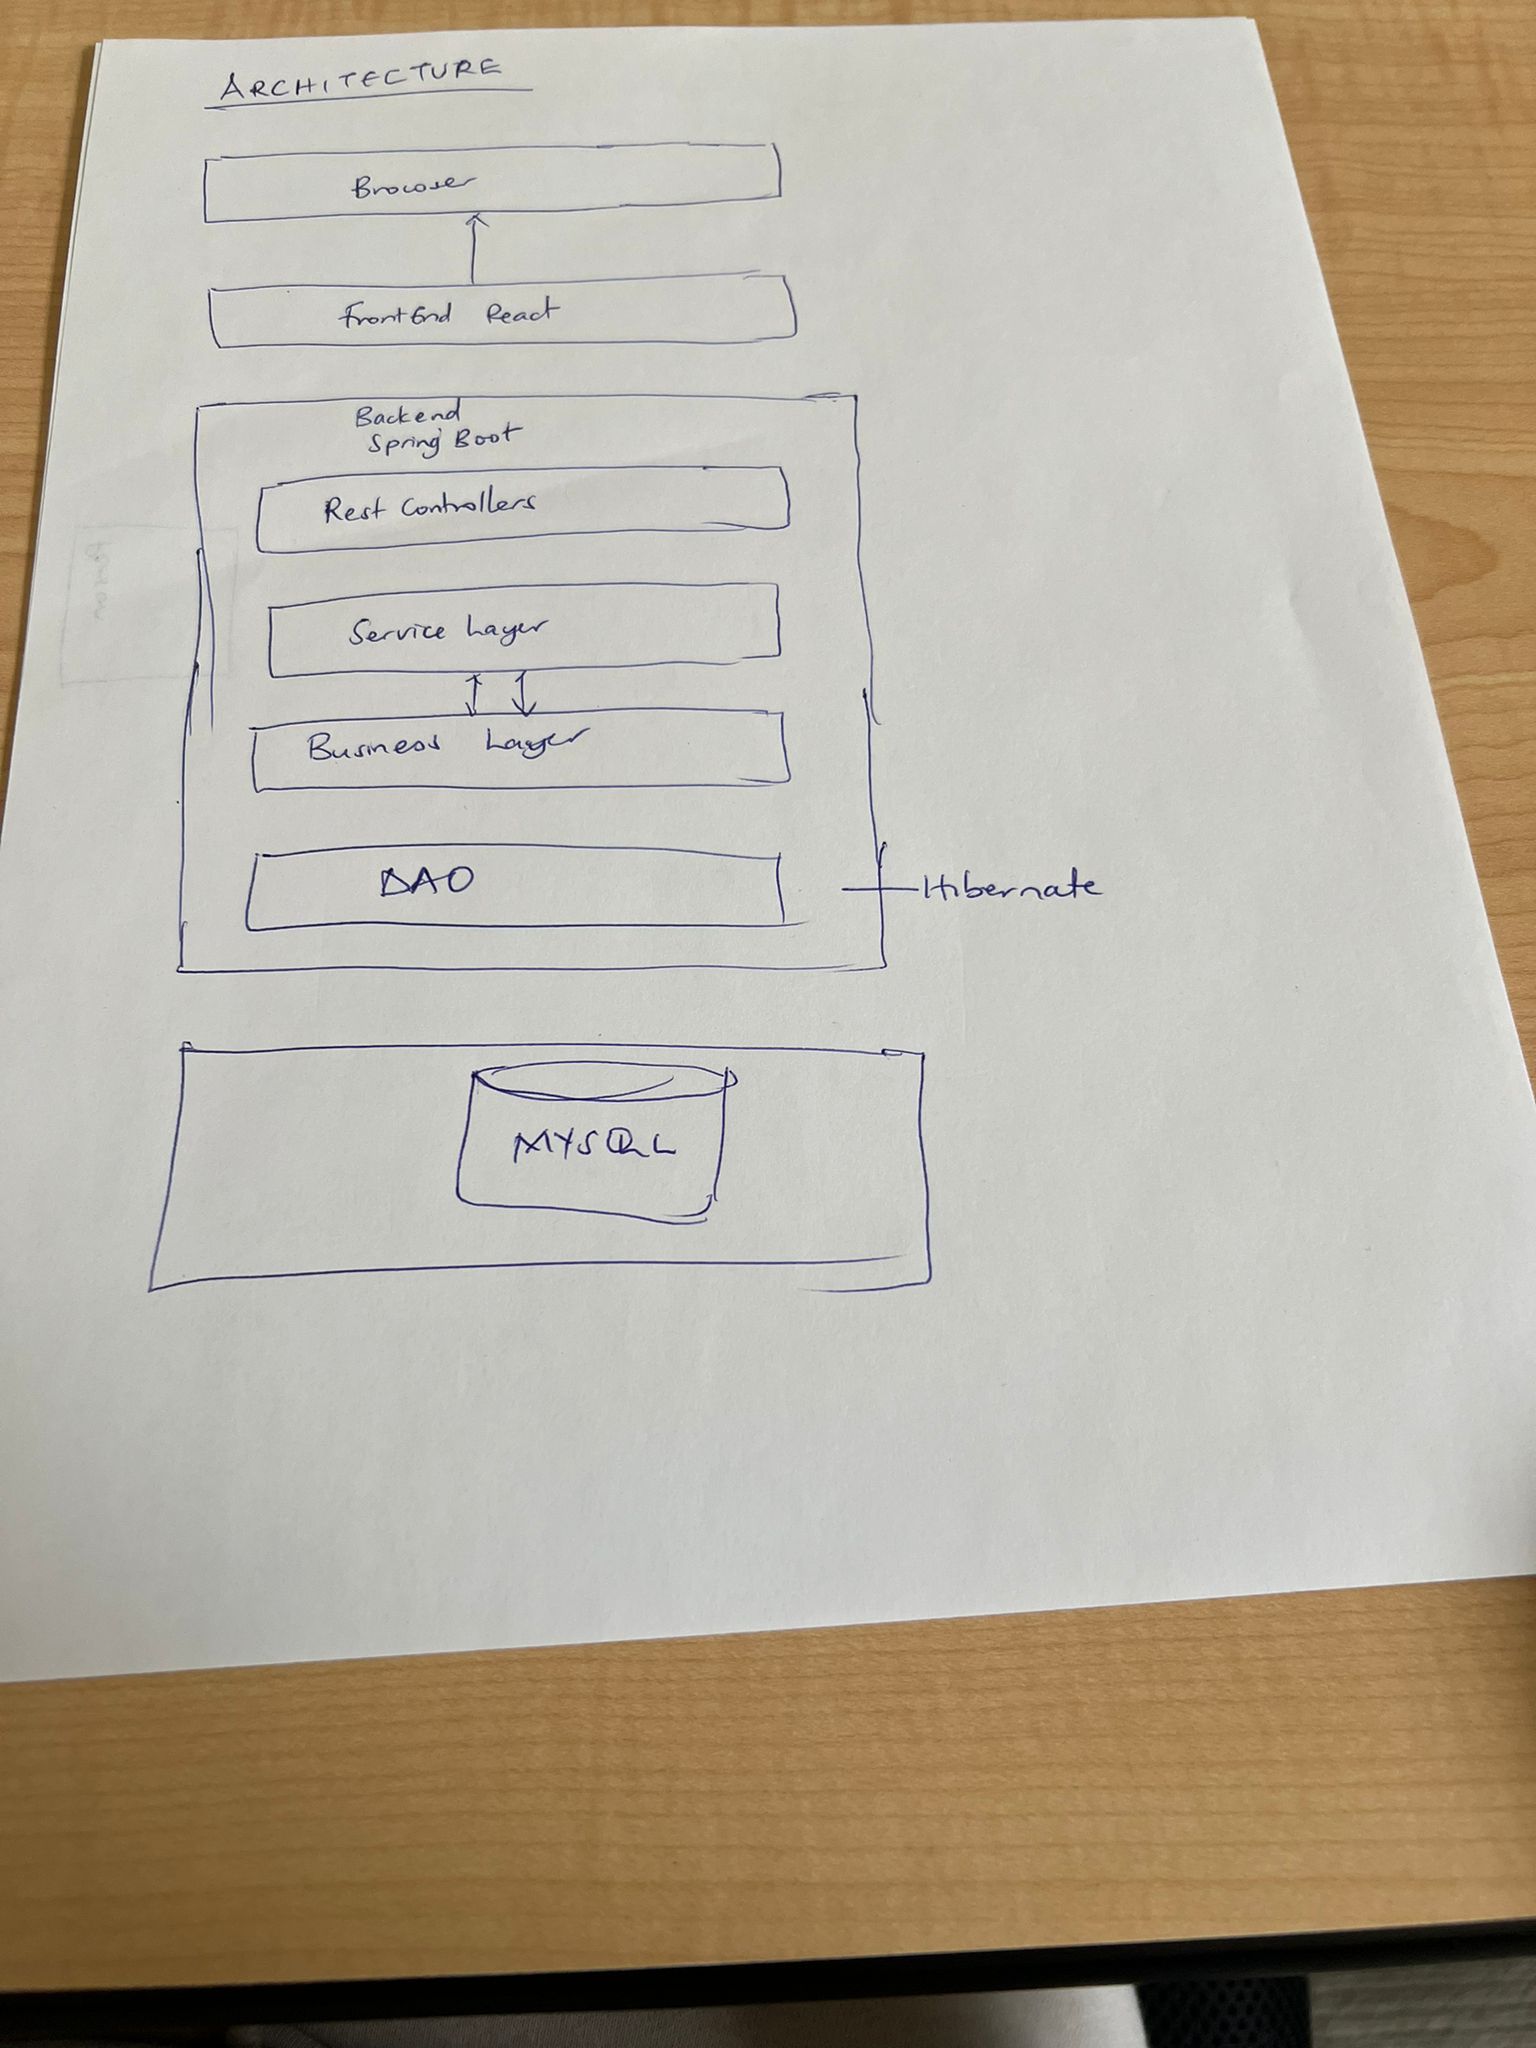 ARCHITECTURE
Browser
FrontEnd React
Backend
Spring Boot
Rest Controllers
Service Layer
Business Layer
DAO
Hibernate
MYSQL